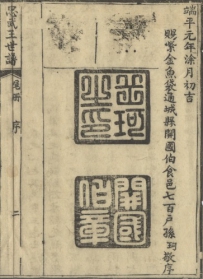 端平元年涂月初吉
賜紫金魚袋通城縣開國伯食邑七百戶孫珂敬序
岳珂
之印
開國
伯章
忠武王世譜
序
二